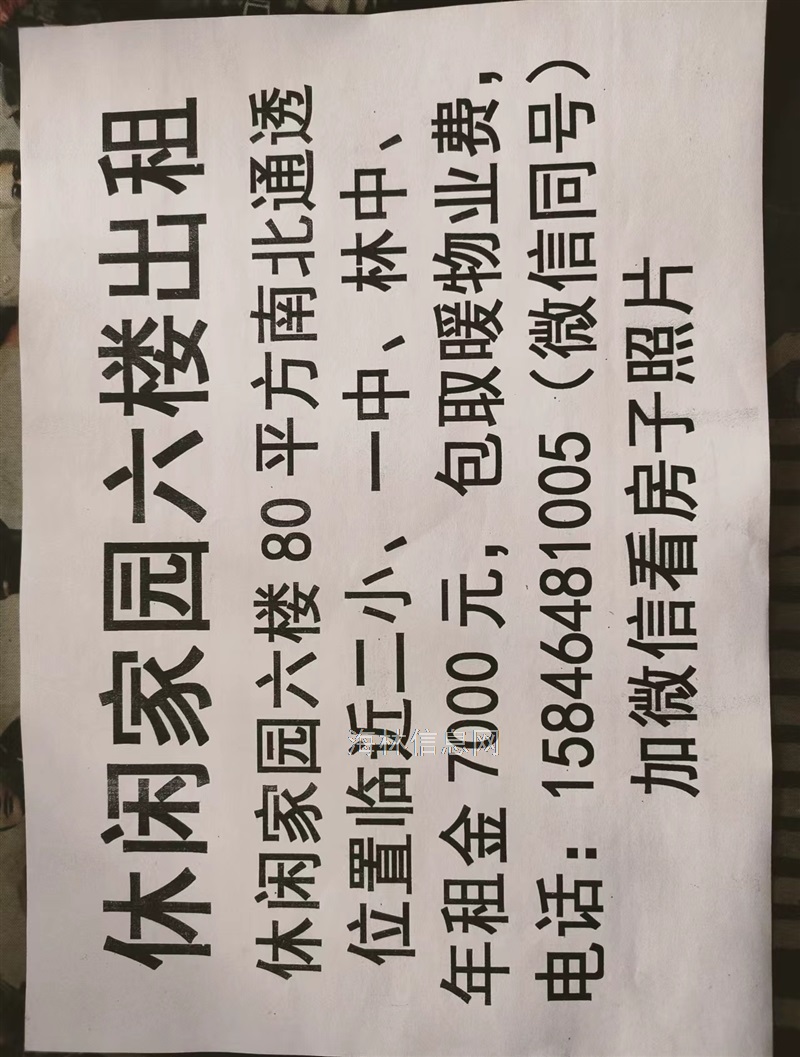 休闲家园六楼出租
休闲家园六楼 80 平方南北通透
位置临近二小、一中、林中、
年租金 7000 元，包取暖物业费，
电话：15846481005（微信同号）
加微信看房子照片
海林信息网